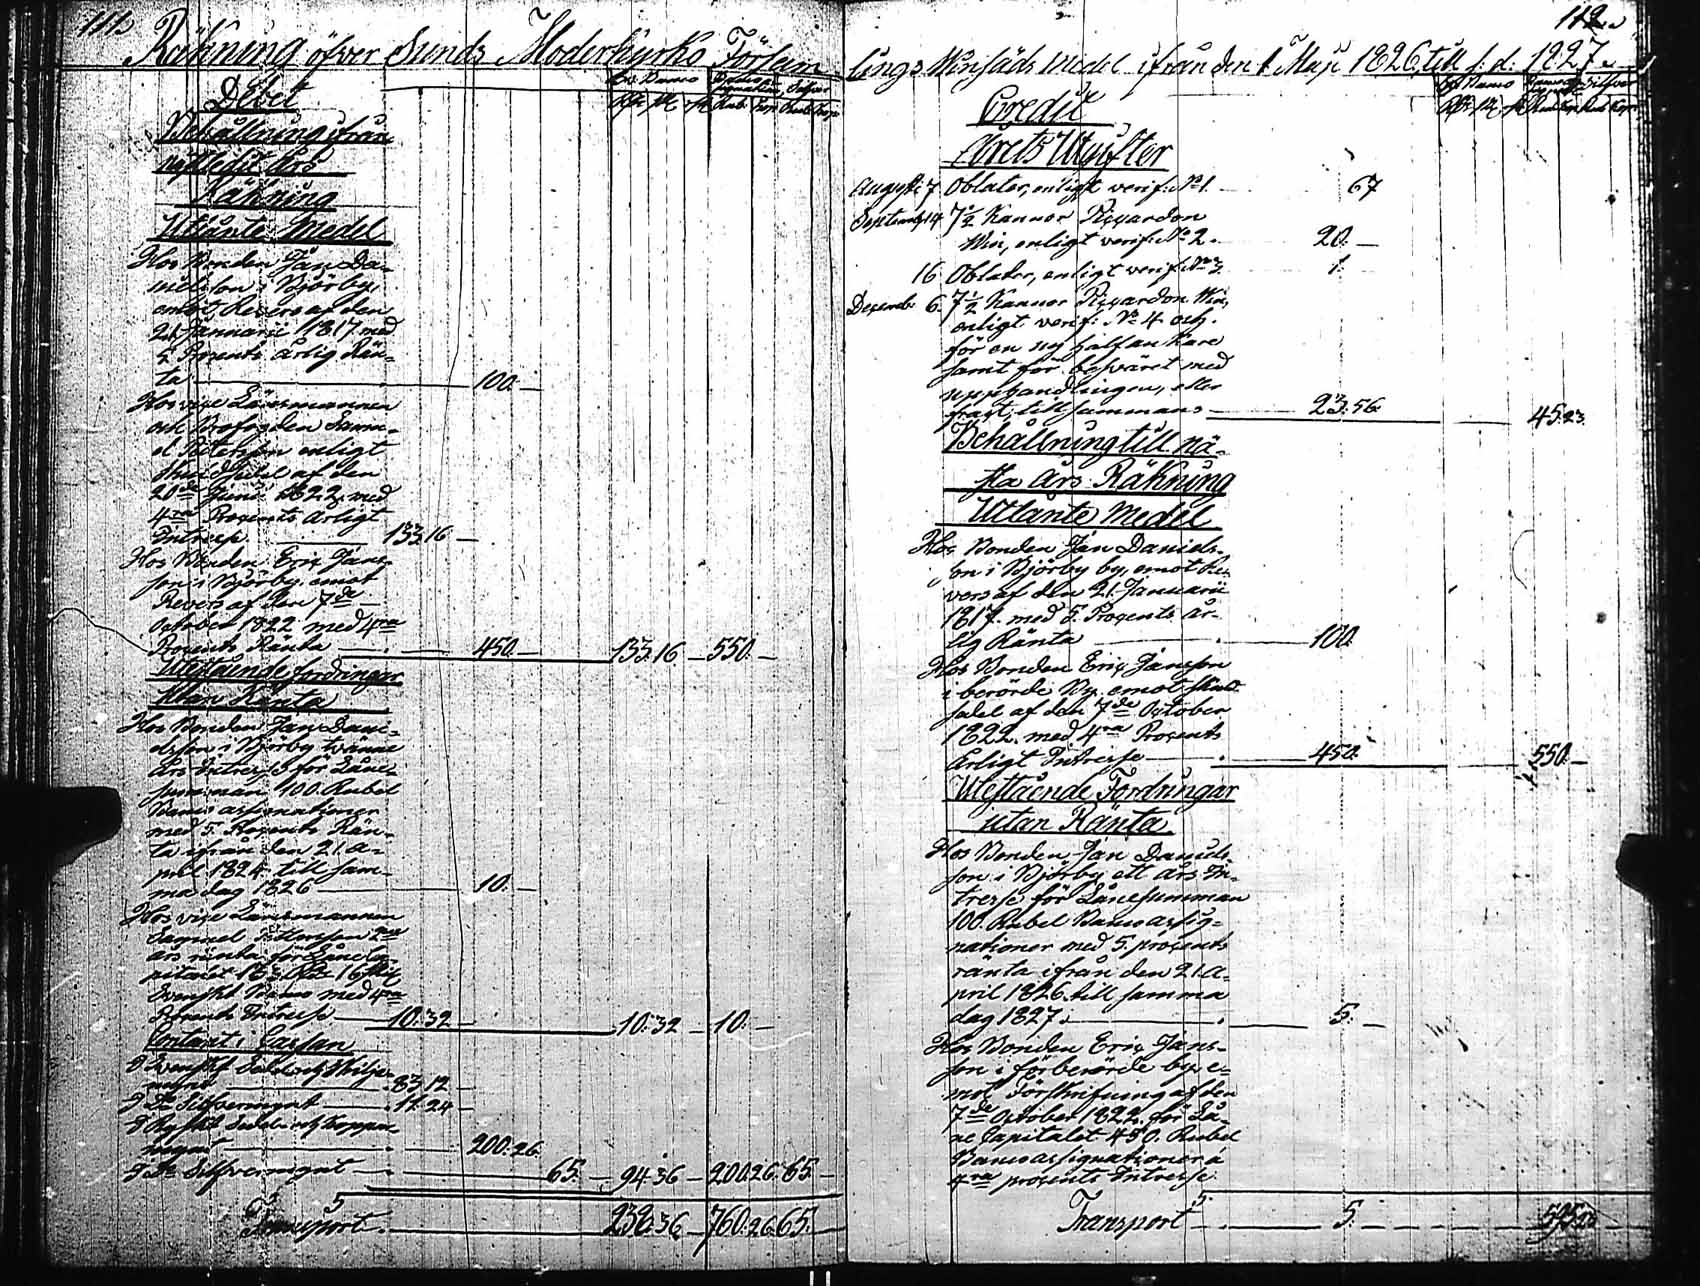 111.
Räkning öfver Sunds Moderkyrko Förlam
Debet
Behållning ifrån
Räkning
Utlånte Medel
Hos Bonden Jan Da-
nielsson i Björby,
emot Revers af den
21 Januarii 1817 med
5 Procents årlig Rän-
ta 100. —
Hos vice Länsmannen
och Brofogden Samu-
el Peterson enligt
Skuldsedel af den
20de Junii 1822 med
4ra Procents Årligt
Intresse 133.16 —
Hos Bonden Eric Jans-
son i Björby emot
Revers af den 7de
October 1822 med 4ra
Procents Ränta 450. — 133.16. — 550. —
Utestående fordringar
Utan Ränta
Hos Bonden Jan Dani-
elsson i Björby tvänne
Års Intresse för Låne-
summan 100. Rubel
Banco assignationer
med 5. Procents Rän-
ta ifrån den 21. A-
pril 1824 till sam-
ma dag 1826 10. —
Hos vice Länsmannen
Samuel Petersson 2ne
års ränta för Låneca-
pitalet 133 16
Svenskt Banco med 4ra
Procents Intresse 10:32 — 10:32 — 10. —
Contant i Cassan
83.12 —
D:o Silfvermynt 11.24 —
200.26
D:o Silfvermynt 65. — 94.36 — 200.26. 65. —
Transport 238.36 760.26.65.
112.
lings Winsäds medel ifrån den 1 Maji 1826 till s. d. 1827.
Credit
Årets Utgifter
Augusti 7 Oblater, enligt verif: No 1. 67
September 14 7½ Kannor Picardon
Win, enligt verif: No 2. 20. —
16 Oblater, enligt verif: No 3. 1.
December 6. 7½ Kannor Picardon Win,
enligt verif: No 4 och
för en ny half an Kare
samt för besväret med
upphandlingen, eller
fragt, tillsammans 23.56. 45.23.
Behållning till nä-
sta Års Räkning
Utlånte Medel
Hos Bonden Jan Daniels-
son i Björby by, emot Re-
vers af den 21. Januarii
1817. med 5. Procents år-
lig Ränta 100.
Hos Bonden Eric Jansson
i berörde By emot Skuld-
sedel af den 7de October
1822. med 4ra Procents
Årligt Intresse 450. 550. —
Utestående Fordringar
utan Ränta.
Hos Bonden Jan Daniels-
son i Björby ett års In-
tresse för Lånesumman
100. Rubel Banco assig-
nationer med 5. procents
ränta ifrån den 21. A-
pril 1826. till samma
dag 1827. 5. —
Hos Bonden Eric Jans-
son i förberörde by e-
mot Förskrifning af den
7de October 1822. för Lå-
ne Capitalet 450. Rubel
Banco assignationer á
4ra procents Intresse
Transport 5. 595.23